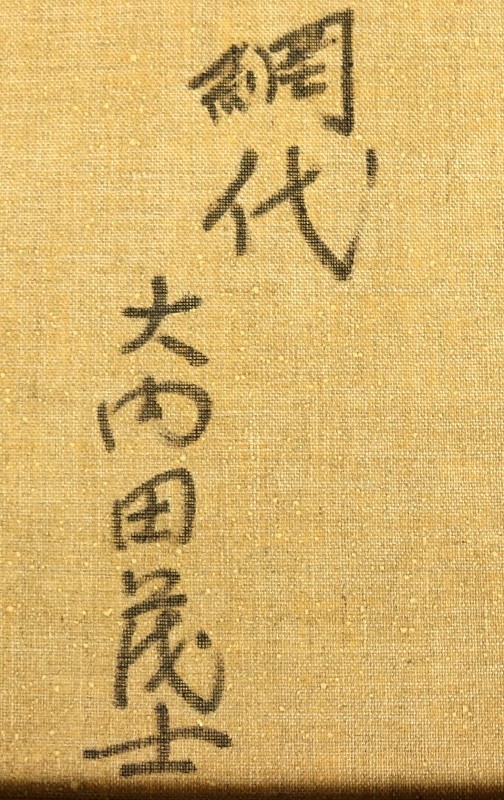 網代
大内田茂士